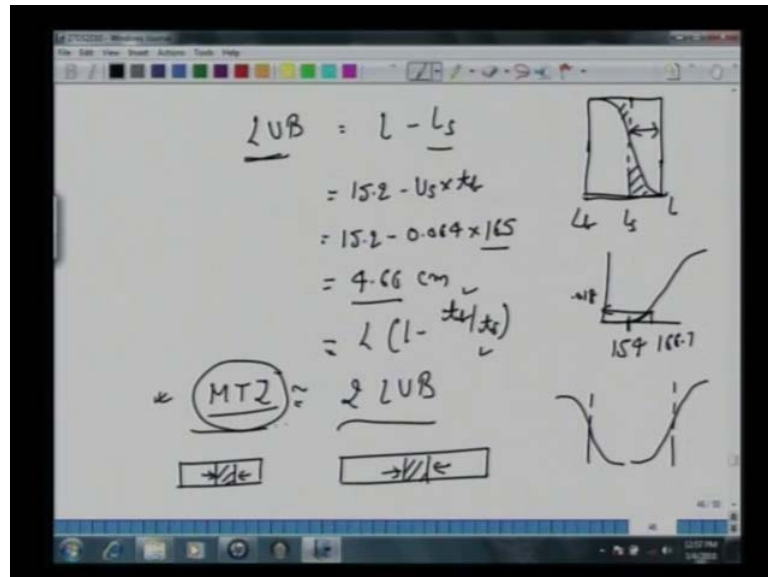 File Edit View Insert Actions Tools Help
LUB = L - Ls
= 15.2 - Us x tb
= 15.2 - 0.064 x 165
= 4.66 cm ✓
= L (1 - tb/ts)
* MTZ ≈ 2 LUB
Ls L
.018
154 166.7
46/50
46
12:57 PM